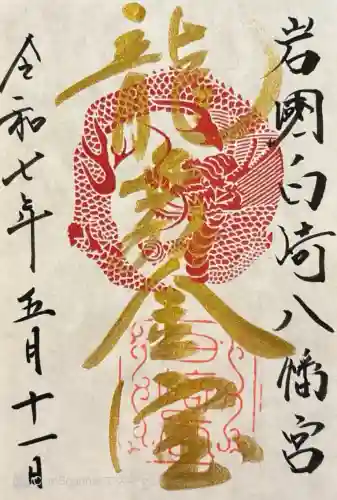 岩國白崎八幡宮
龍
金宝
令和七年五月十一日